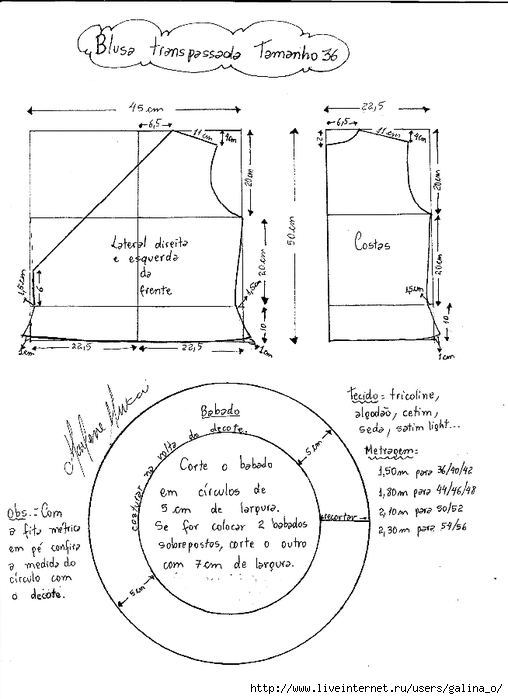 Blusa transpassada Tamanho 36
45 cm
22,5
6,5
11 cm
4cm
6,5
11 cm
4cm
2
20 cm
20 cm
50 cm
Lateral direita
e esquerda
da
frente
Costas
20 cm
20 cm
1,5cm
6
1,5cm
1,5cm
10
10
22,5
22,5
1cm
1cm
1cm
Marlene Mukai
Babado
costurar na volta do decote.
5 cm
Corte o babado
em círculos de
5 cm de largura.
Se for colocar 2 babados
sobrepostos, corte o outro
com 7cm de largura.
recortar
5 cm
Tecido: tricoline,
algodão, cetim,
seda, satim light...
Metragem:
1,50m para 36/40/42
1,80m para 44/46/48
2,10m para 50/52
2,30m para 54/56
Obs.: Com
a fita métrica
em pé confira
a medida do
círculo com
o decote.
http://www.liveinternet.ru/users/galina_o/